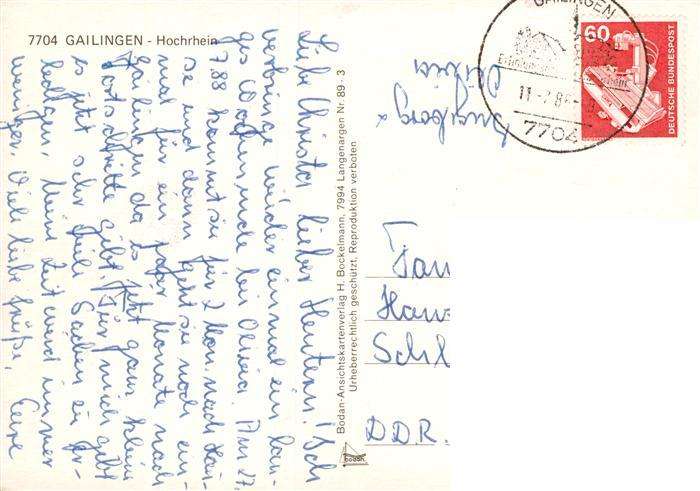 7704 GAILINGEN - Hochrhein
Liebe Christa, lieber Hans! Ich
verbringe wieder einmal ein lan-
ges Wochenende bei Olivia. Am 27.
7.88 kommt sie für 2 Mon. nach Hau-
se und dann geht sie noch ein-
mal für ein paar Monate nach
Gailingen da es jetzt ganz kleine
Fortschritte gibt. Für mich gibt
es jetzt sehr viele Sachen zu er-
ledigen. Mein Zeit wird immer
weniger. Viele liebe Grüße, Eure
Ingeborg &
Olivia
Bodan-Ansichtskartenverlag H. Bockelmann, 7994 Langenargen Nr. 89 - 3
Urheberrechtlich geschützt, Reproduktion verboten
bodan
GAILINGEN
7704
60
DEUTSCHE BUNDESPOST
Fam
Han
Schl
DDR.